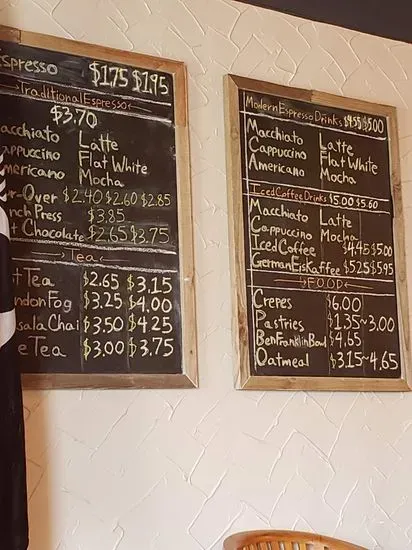 Espresso $1.75 $1.95
Traditional Espresso
$3.70
acchiato Latte
appuccino Flat White
mericano Mocha
r-Over $2.40 $2.60 $2.85
nch Press $3.85
t Chocolate $2.65 $3.75
Tea
t Tea $2.65 $3.15
ndon Fog $3.25 $4.00
sala Chai $3.50 $4.25
e Tea $3.00 $3.75
Modern Espresso Drinks $4.55 $5.00
Macchiato Latte
Cappuccino Flat White
Americano Mocha
Iced Coffee Drinks $5.00 $5.60
Macchiato Latte
Cappuccino Mocha
Iced Coffee $4.45 $5.00
German Eis Kaffee $5.25 $5.95
FOOD
Crepes $6.00
Pastries $1.35~3.00
Ben Franklin Bowl $4.65
Oatmeal $3.15~4.65